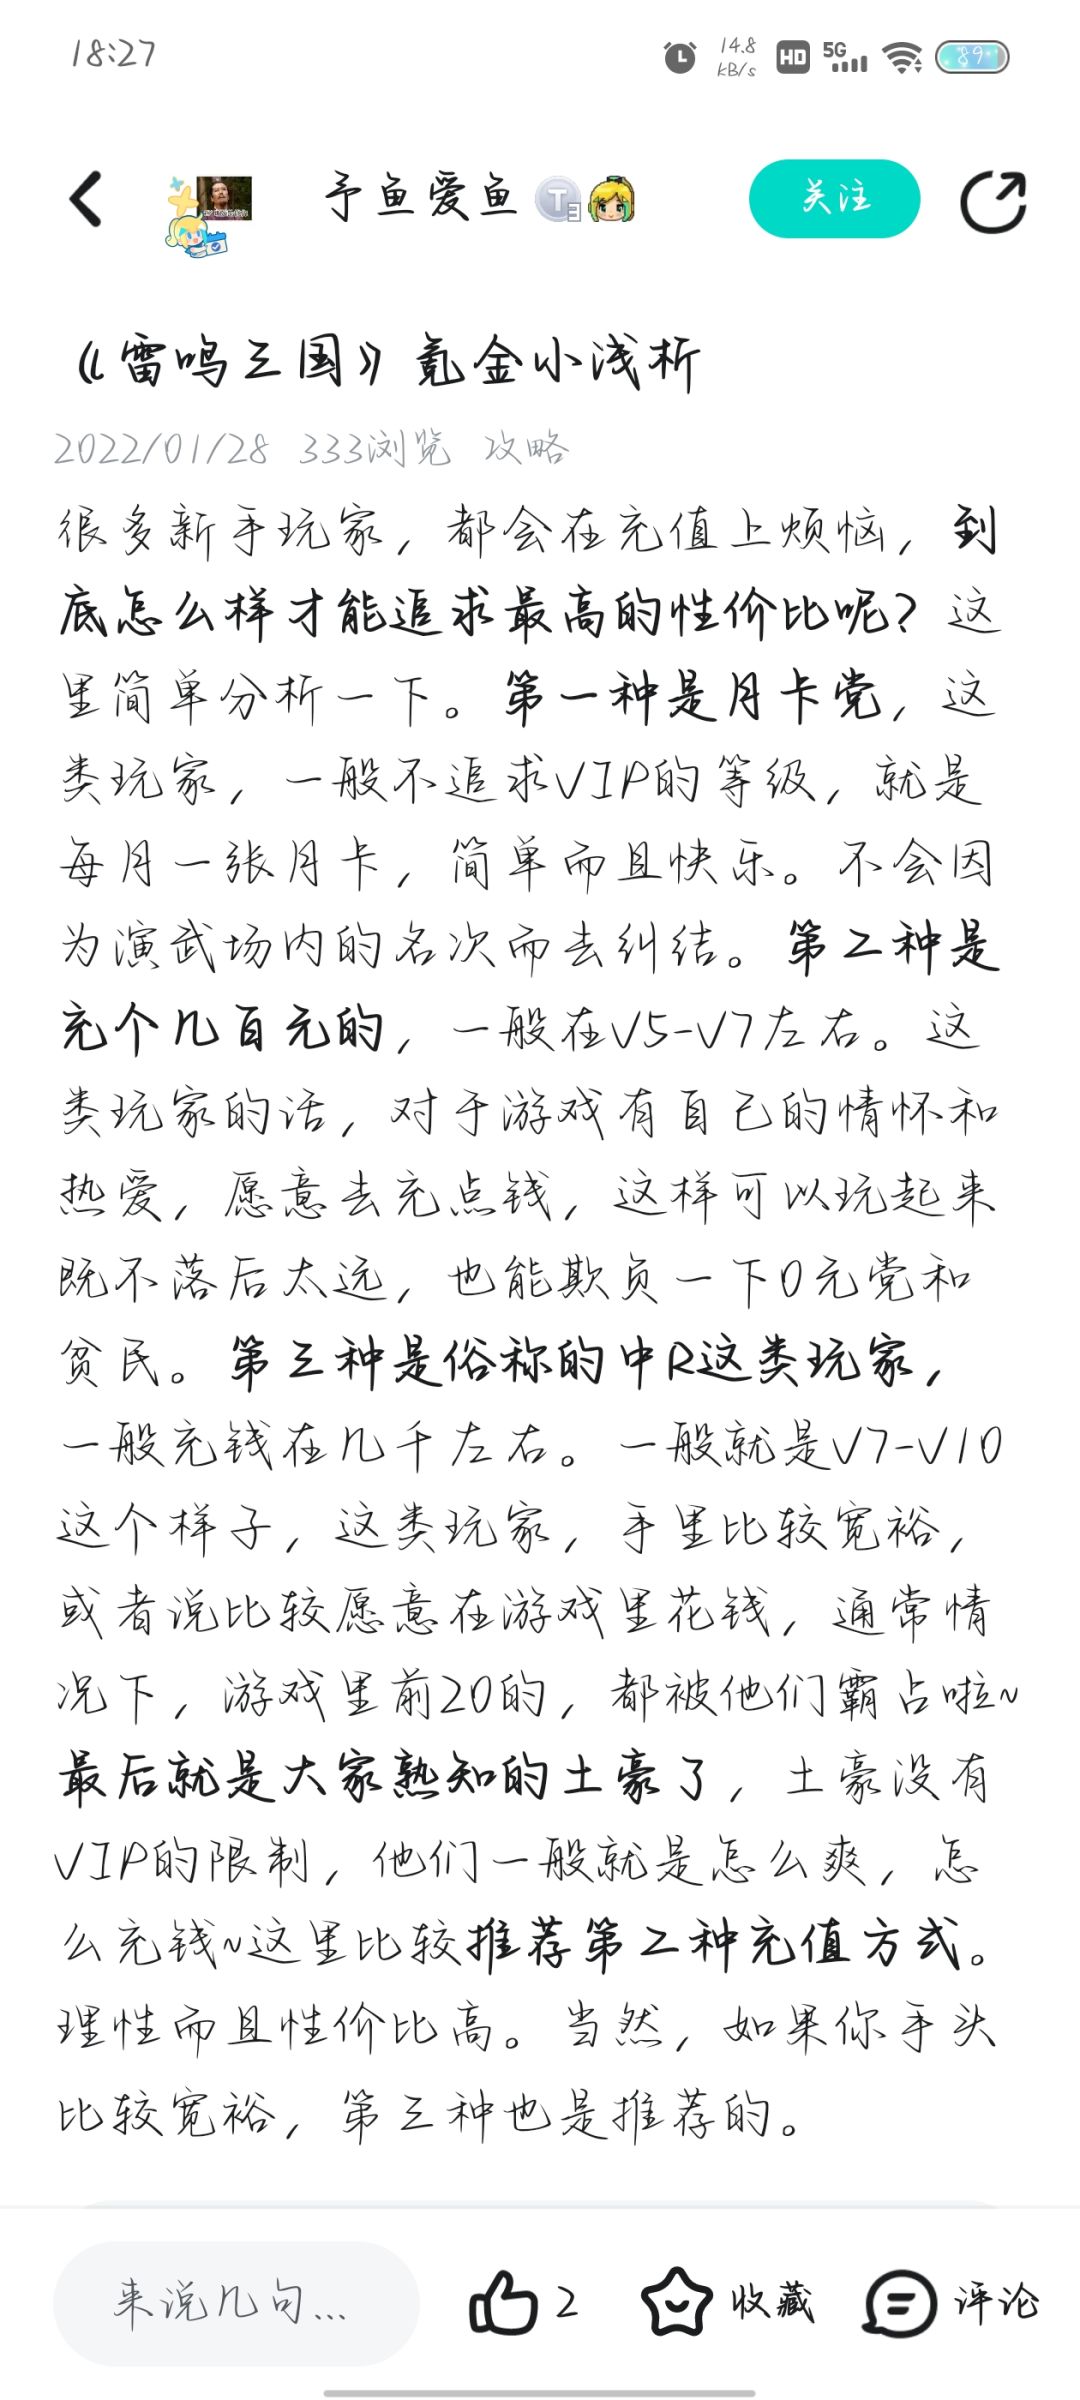 18:27
14.8
kB/s
HD
5G
89
予鱼爱鱼
T
3
关注
《雷鸣三国》氪金小浅析
2022/01/28 333浏览 攻略
很多新手玩家，都会在充值上烦恼，到
底怎么样才能追求最高的性价比呢？这
里简单分析一下。第一种是月卡党，这
类玩家，一般不追求VIP的等级，就是
每月一张月卡，简单而且快乐。不会因
为演武场内的名次而去纠结。第二种是
充个几百元的，一般在V5-V7左右。这
类玩家的话，对于游戏有自己的情怀和
热爱，愿意去充点钱，这样可以玩起来
既不落后太远，也能欺负一下0元党和
贫民。第三种是俗称的中R这类玩家，
一般充钱在几千左右。一般就是V7-V10
这个样子，这类玩家，手里比较宽裕，
或者说比较愿意在游戏里花钱，通常情
况下，游戏里前20的，都被他们霸占啦~
最后就是大家熟知的土豪了，土豪没有
VIP的限制，他们一般就是怎么爽，怎
么充钱~这里比较推荐第二种充值方式。
理性而且性价比高。当然，如果你手头
比较宽裕，第三种也是推荐的。
来说几句...
2
收藏
评论